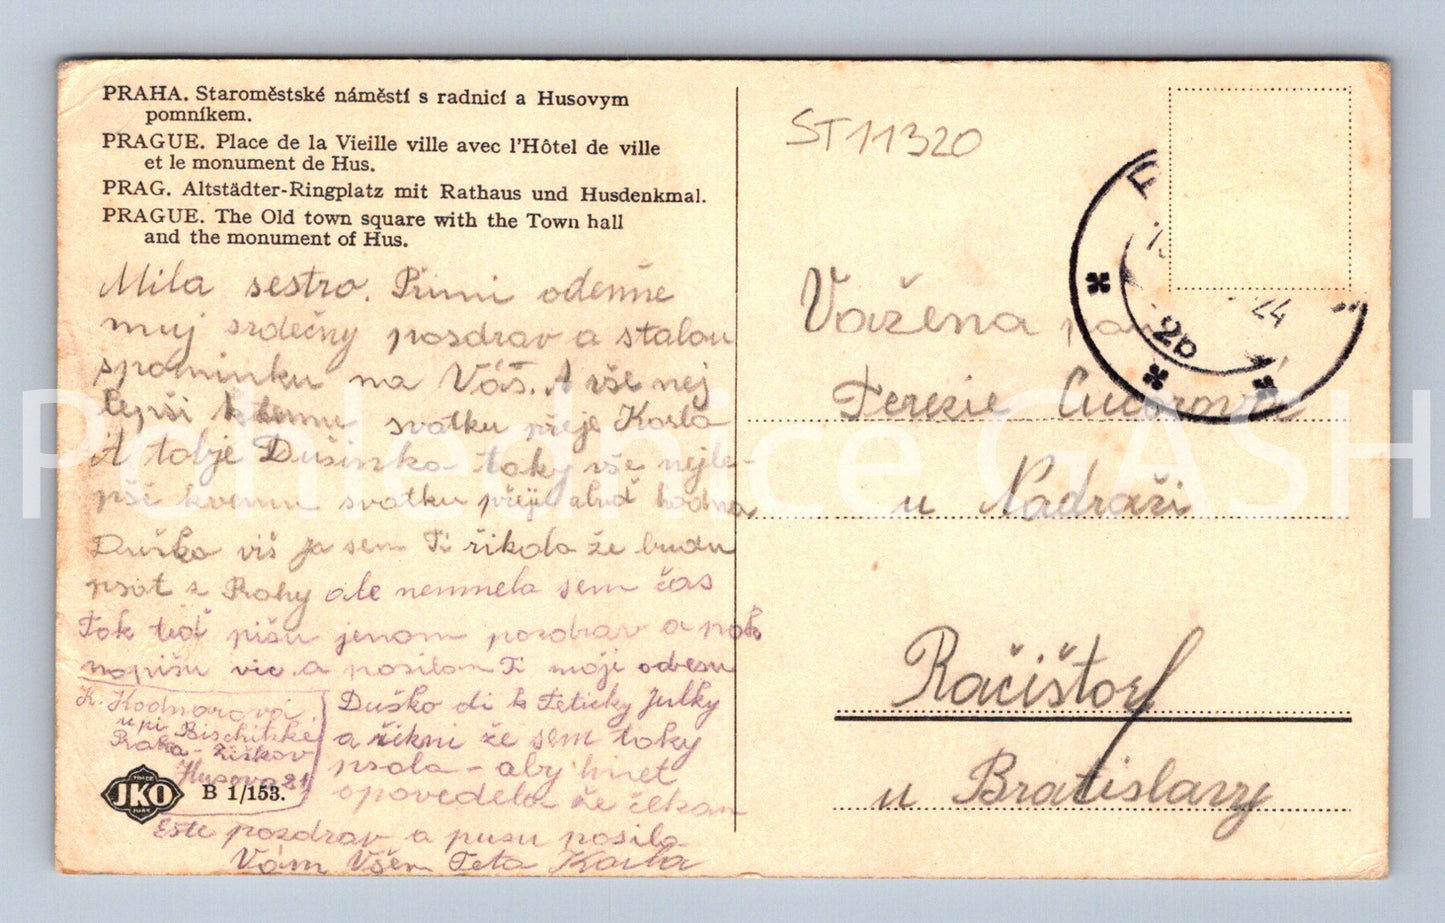 PRAHA. Staroměstské náměstí s radnicí a Husovym
pomníkem.
PRAGUE. Place de la Vieille ville avec l'Hôtel de ville
et le monument de Hus.
PRAG. Altstädter-Ringplatz mit Rathaus und Husdenkmal.
PRAGUE. The Old town square with the Town hall
and the monument of Hus.
Mila sestro. Přimi odemne
muj srdečny pozdrav a stalou
spominku na Váš. A vše nej
lepši k temu svatku přeje Karla
A tobje Dušinko taky vše nejle-
pši k svatku přeji buď hodna
Duško viš ja sem Ti řikala že budu
psat z Prahy ale nemnela sem čas
Tak teď pišu jenom pozdrav a pak
napišu vic. a posilam Ti moji adresu
Duško di k Teticky Julky
a řikni že sem taky
psala - aby hnet
opovedela že čekam
Este pozdrav a pusu posila
Vám Všem Teta Karla
K. Hodnarová
u pi
Praha - Žiškov
Husova 81
JKO
B 1/153.
ST 11320
Važena
Terezie
u Nadraži
Račištorf
u Bratislavy
24
2b
Pohlednice GASH